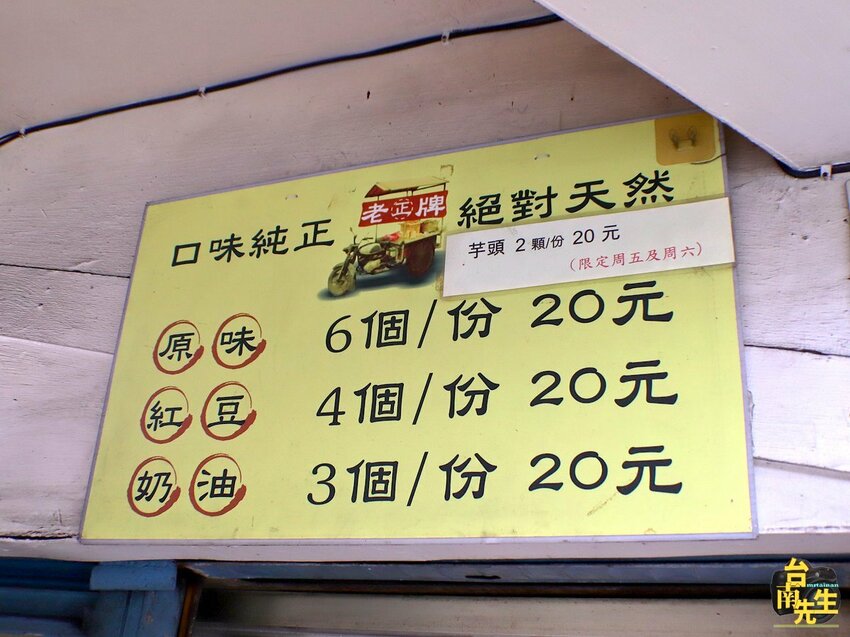 口味純正 老正牌 絕對天然
芋頭 2 顆/份 20 元
(限定周五及周六)
原味 6個/份 20元
紅豆 4個/份 20元
奶油 3個/份 20元
台南先生
mrtainan